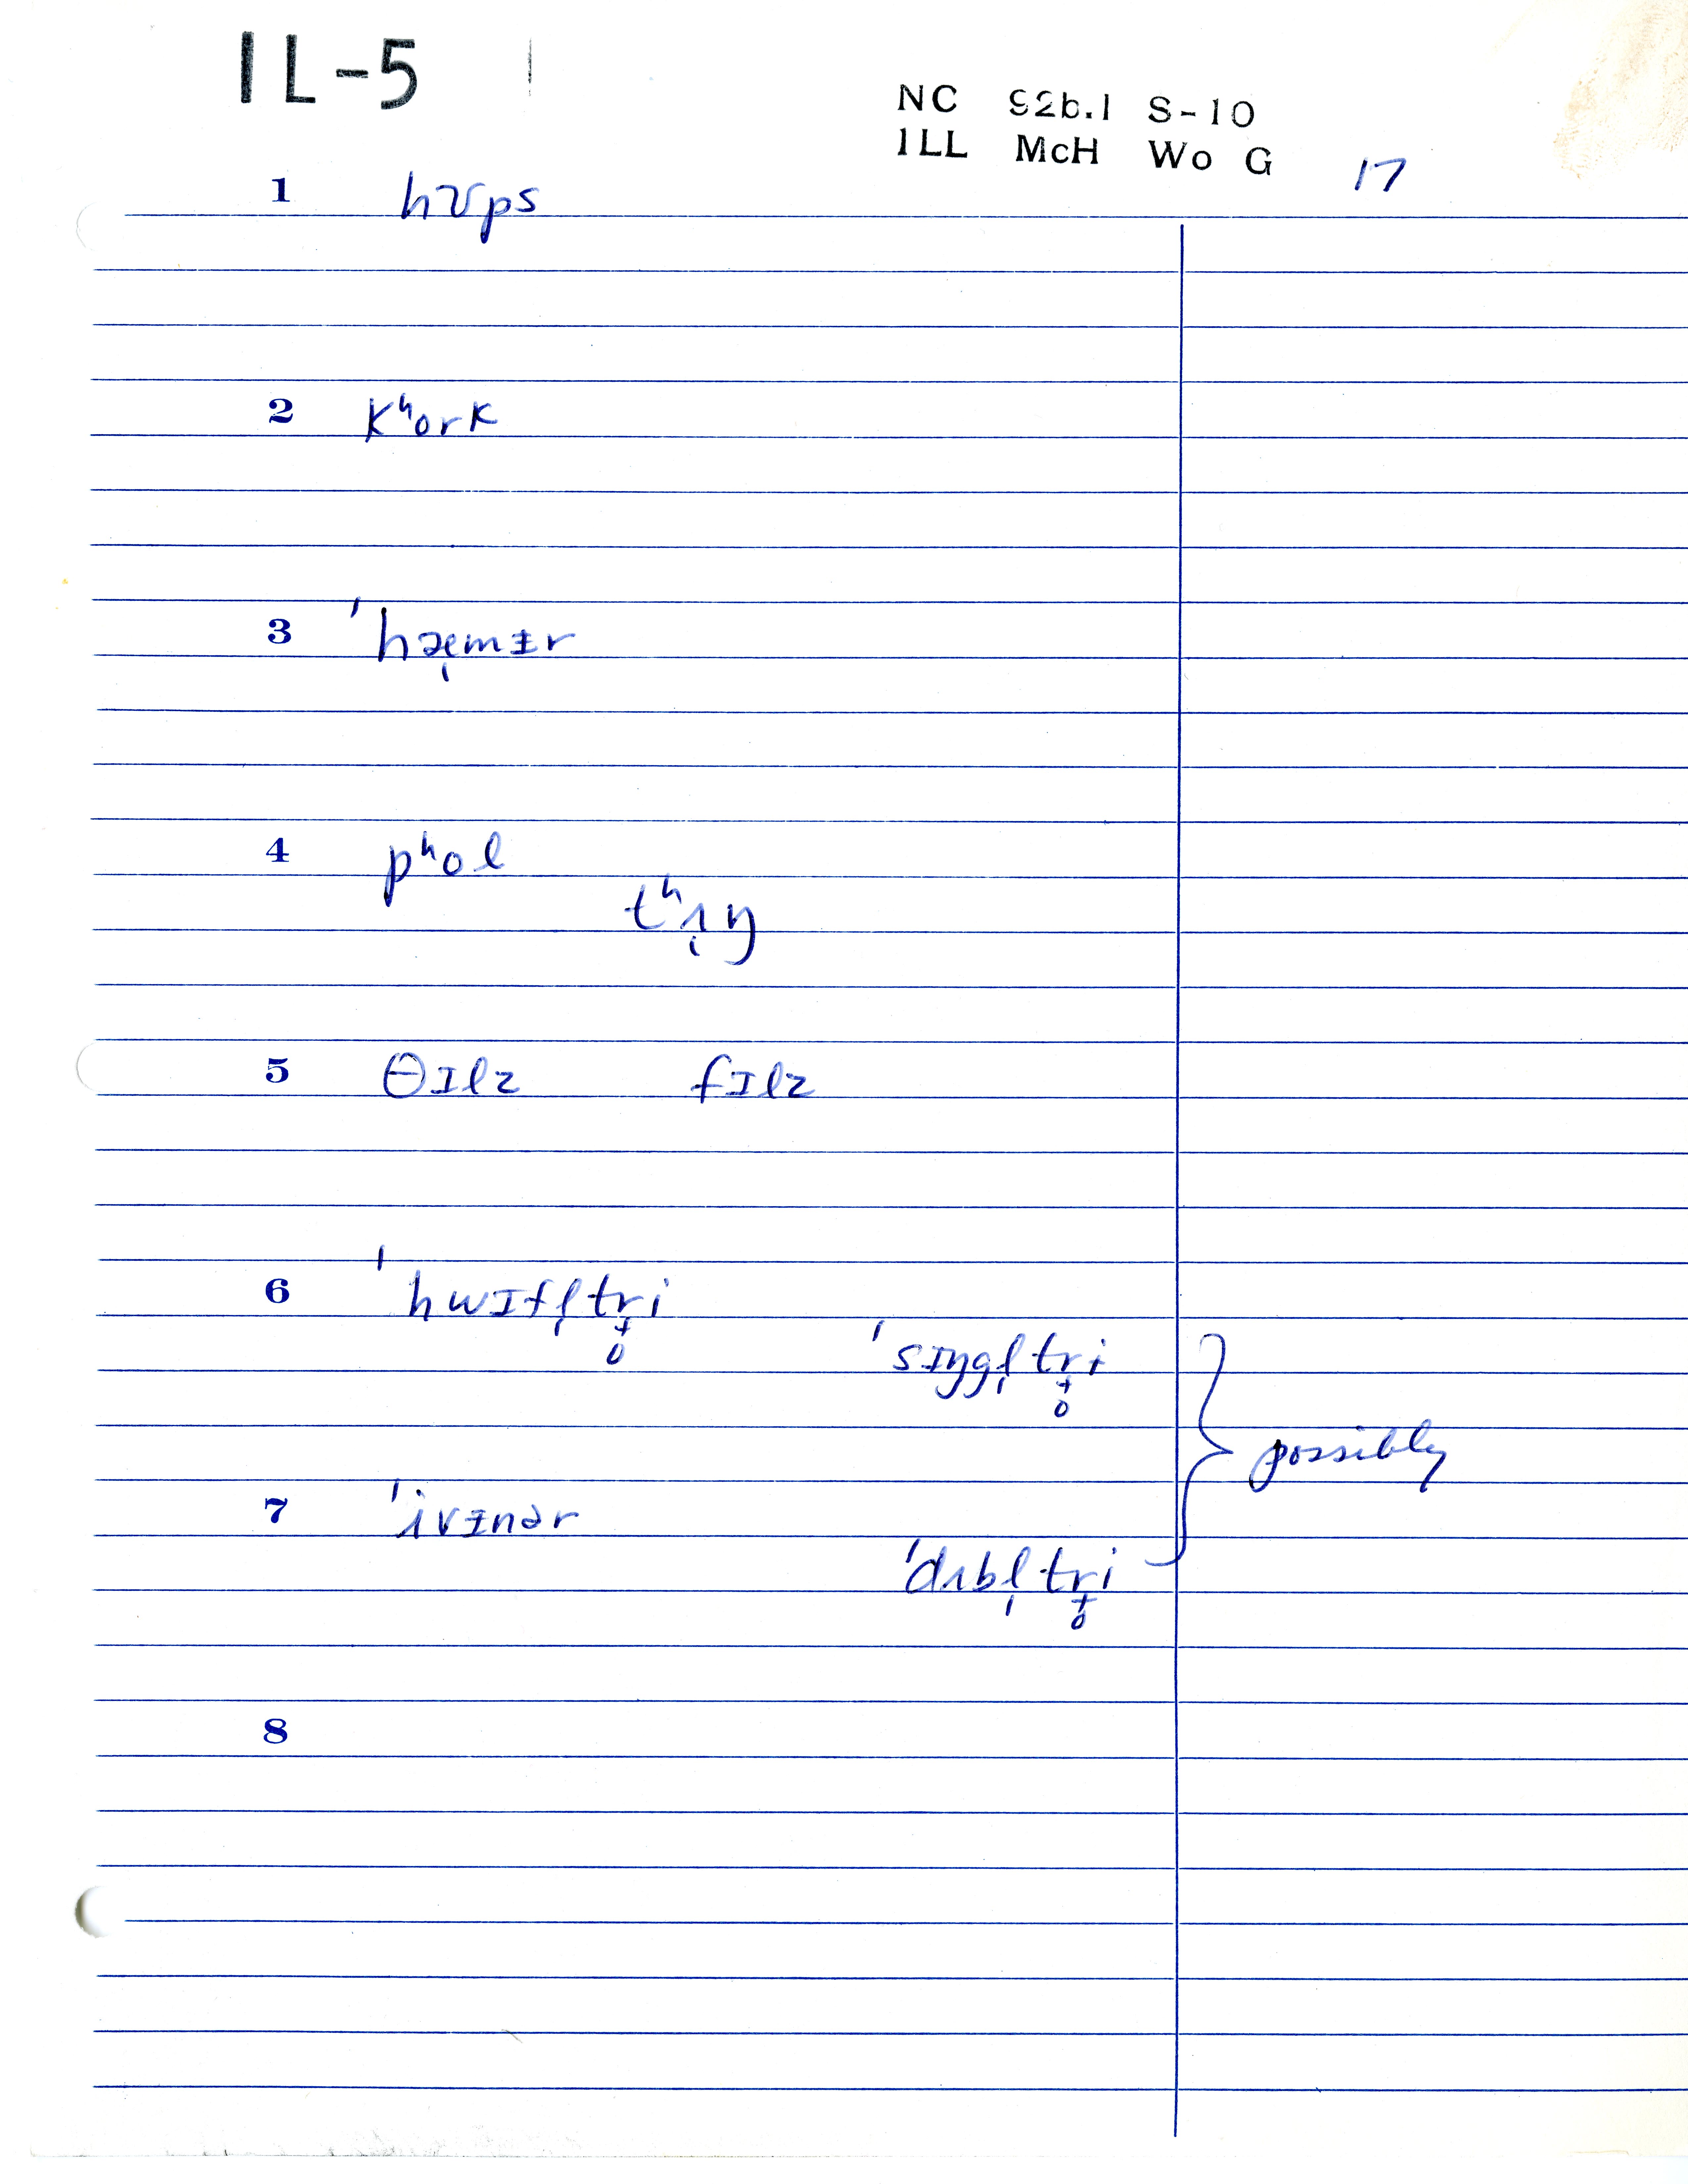 IL-5
NC 92b.1 S-10
ILL McH Wo G 17
1 hʊps
2 kʰork
3 ˈhæ̩mɪ̵r
4 pʰol
tʰʌ̩ŋ
5 θɪlz fɪlz
6 ˈhwɪfl̩tr̟̥i
ˈsɪŋgl̩tr̟̥i
possibly
7 ˈivɪ̵nər
ˈdʌbl̩tr̟̥i
8